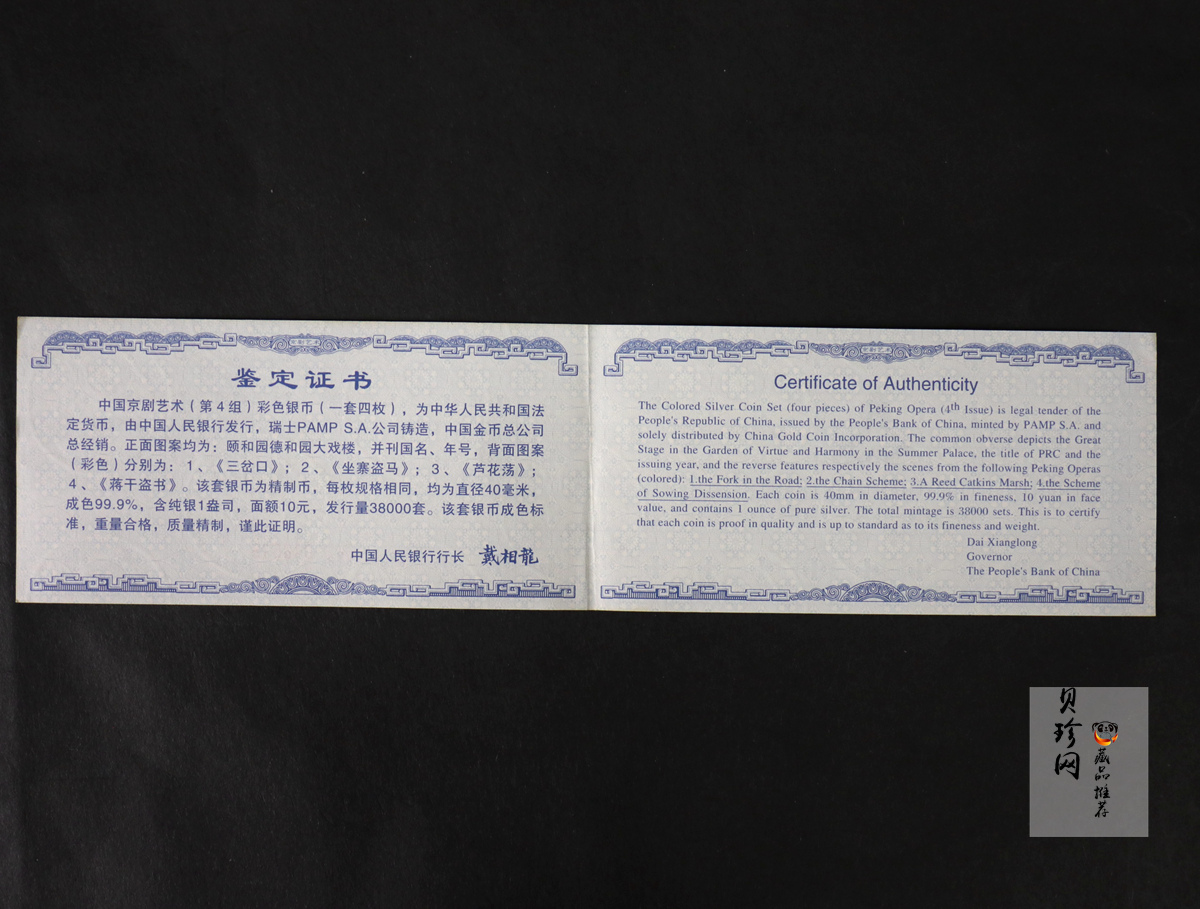 鉴定证书
中国京剧艺术（第4组）彩色银币（一套四枚），为中华人民共和国法
定货币，由中国人民银行发行，瑞士PAMP S.A.公司铸造，中国金币总公司
总经销。正面图案均为：颐和园德和园大戏楼，并刊国名、年号，背面图案
（彩色）分别为：1、《三岔口》；2、《坐寨盗马》；3、《芦花荡》；
4、《蒋干盗书》。该套银币为精制币，每枚规格相同，均为直径40毫米，
成色99.9%，含纯银1盎司，面额10元，发行量38000套。该套银币成色标
准，重量合格，质量精制，谨此证明。
中国人民银行行长 戴相龍
京剧艺术
Certificate of Authenticity
The Colored Silver Coin Set (four pieces) of Peking Opera (4th Issue) is legal tender of the
People's Republic of China, issued by the People's Bank of China, minted by PAMP S.A. and
solely distributed by China Gold Coin Incorporation. The common obverse depicts the Great
Stage in the Garden of Virtue and Harmony in the Summer Palace, the title of PRC and the
issuing year, and the reverse features respectively the scenes from the following Peking Operas
(colored): 1.the Fork in the Road; 2.the Chain Scheme; 3.A Reed Catkins Marsh; 4.the Scheme
of Sowing Dissension. Each coin is 40mm in diameter, 99.9% in fineness, 10 yuan in face
value, and contains 1 ounce of pure silver. The total mintage is 38000 sets. This is to certify
that each coin is proof in quality and is up to standard as to its fineness and weight.
Dai Xianglong
Governor
The People's Bank of China
京剧艺术
贝珍网
藏品推荐